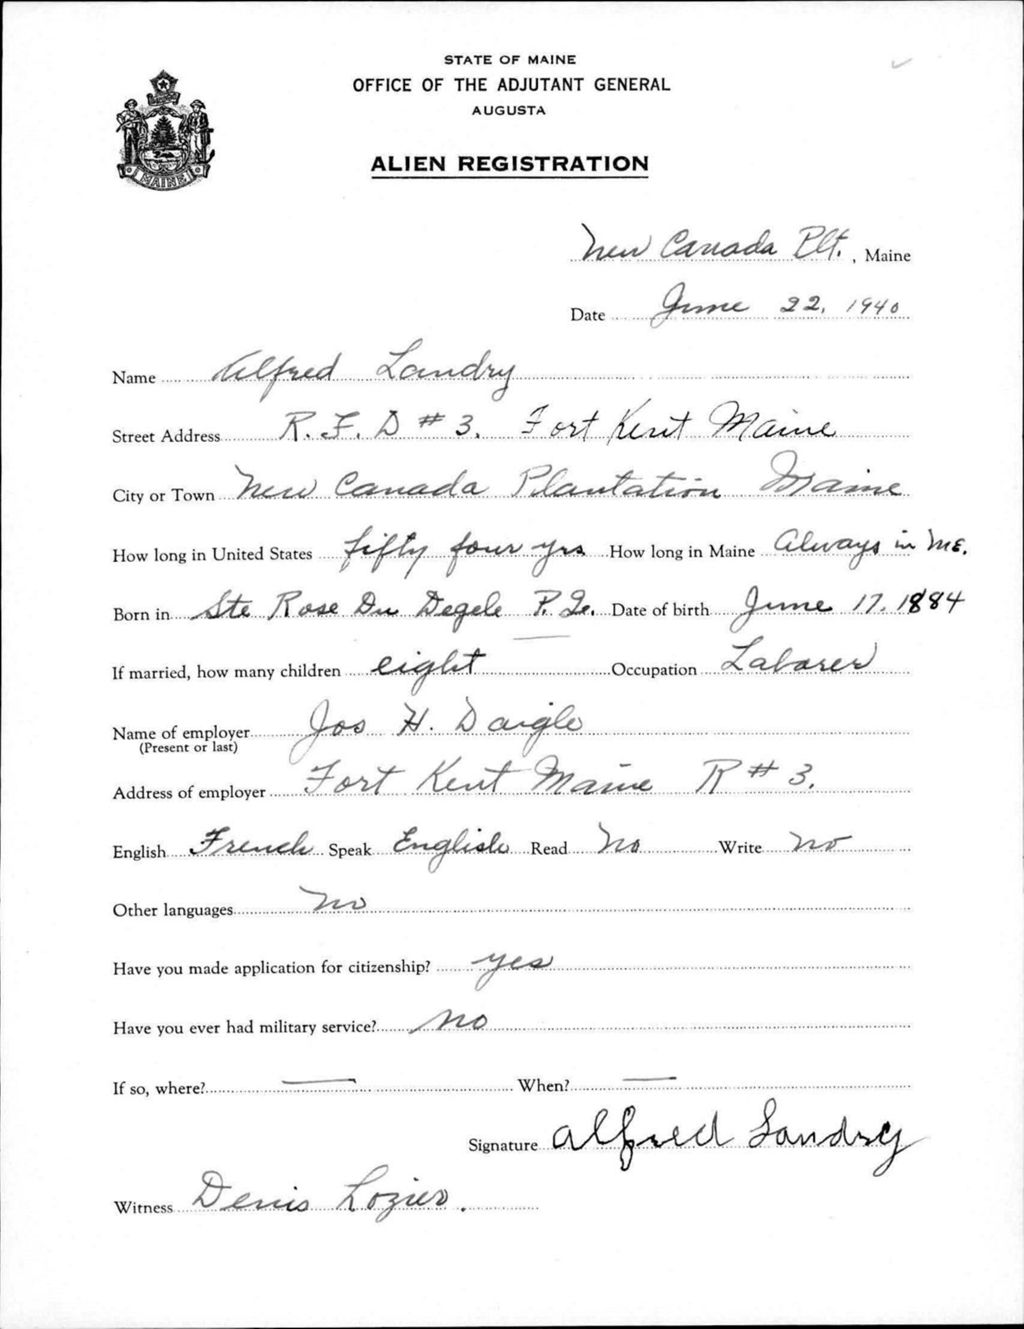 STATE OF MAINE
OFFICE OF THE ADJUTANT GENERAL
AUGUSTA
MAINE
ALIEN REGISTRATION
New Canada Plt., Maine
Date June 22, 1940
Name Alfred Landry
Street Address R.F.D #3. Fort Kent Maine
City or Town New Canada Plantation Maine
How long in United States fifty four yrs How long in Maine Always in ME.
Born in Ste Rose Du Degele P.Q. Date of birth June 17, 1884
If married, how many children eight Occupation Laborer
Name of employer Jos H. Daigle
(Present or last)
Address of employer Fort Kent Maine R #3.
English French Speak English Read No Write No
Other languages No
Have you made application for citizenship? yes
Have you ever had military service? No
If so, where? — When? —
Signature Alfred Landry
Witness Denis Lozier.